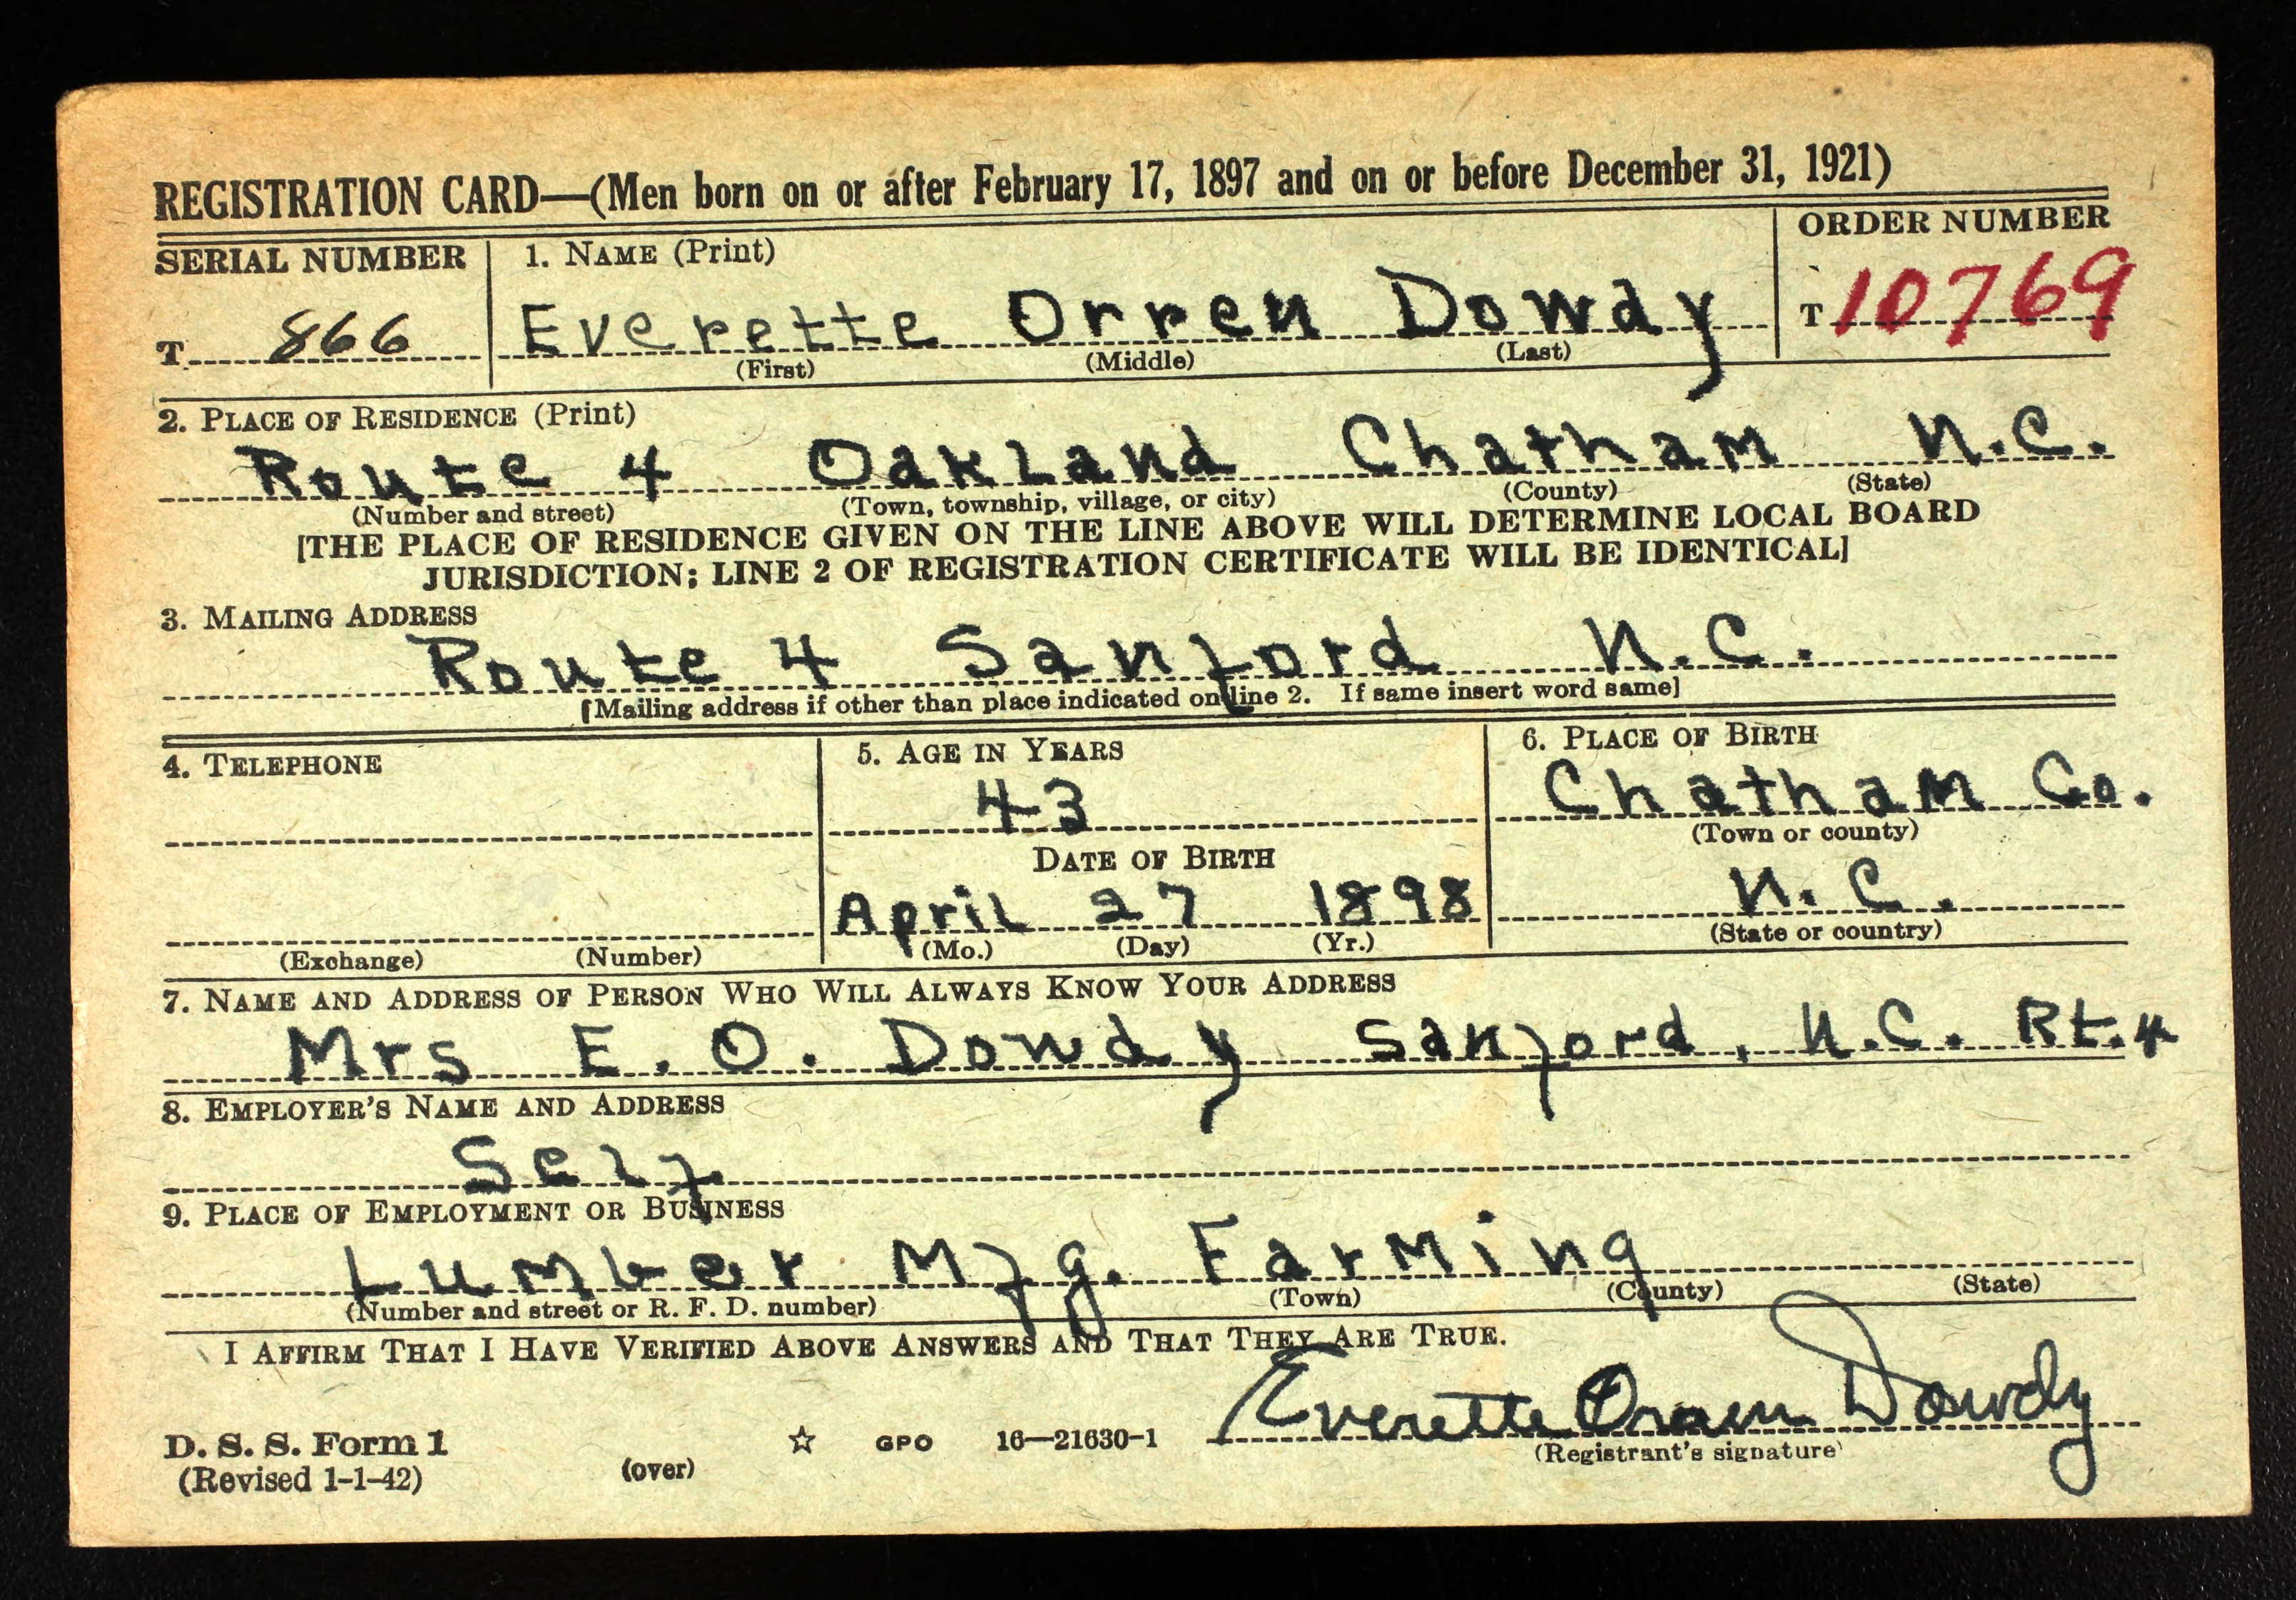 REGISTRATION CARD—(Men born on or after February 17, 1897 and on or before December 31, 1921)
SERIAL NUMBER 1. NAME (Print) ORDER NUMBER
T 866 Everette Orren Dowdy T 10769
(First) (Middle) (Last)
2. PLACE OF RESIDENCE (Print)
Route 4 Oakland Chatham N.C.
(Number and street) (Town, township, village, or city) (County) (State)
[THE PLACE OF RESIDENCE GIVEN ON THE LINE ABOVE WILL DETERMINE LOCAL BOARD
JURISDICTION; LINE 2 OF REGISTRATION CERTIFICATE WILL BE IDENTICAL]
3. MAILING ADDRESS
Route 4 Sanford N.C.
[Mailing address if other than place indicated on line 2. If same insert word same]
4. TELEPHONE 5. AGE IN YEARS 6. PLACE OF BIRTH
43 Chatham Co.
(Town or county)
DATE OF BIRTH
April 27 1898 N.C.
(Exchange) (Number) (Mo.) (Day) (Yr.) (State or country)
7. NAME AND ADDRESS OF PERSON WHO WILL ALWAYS KNOW YOUR ADDRESS
Mrs E. O. Dowdy Sanford, N.C. Rt. 4
8. EMPLOYER'S NAME AND ADDRESS
Self
9. PLACE OF EMPLOYMENT OR BUSINESS
Lumber Mfg. Farming
(Number and street or R. F. D. number) (Town) (County) (State)
I AFFIRM THAT I HAVE VERIFIED ABOVE ANSWERS AND THAT THEY ARE TRUE.
Everette Orren Dowdy
D. S. S. Form 1 ☆ GPO 16—21630-1 (Registrant's signature)
(Revised 1-1-42) (over)